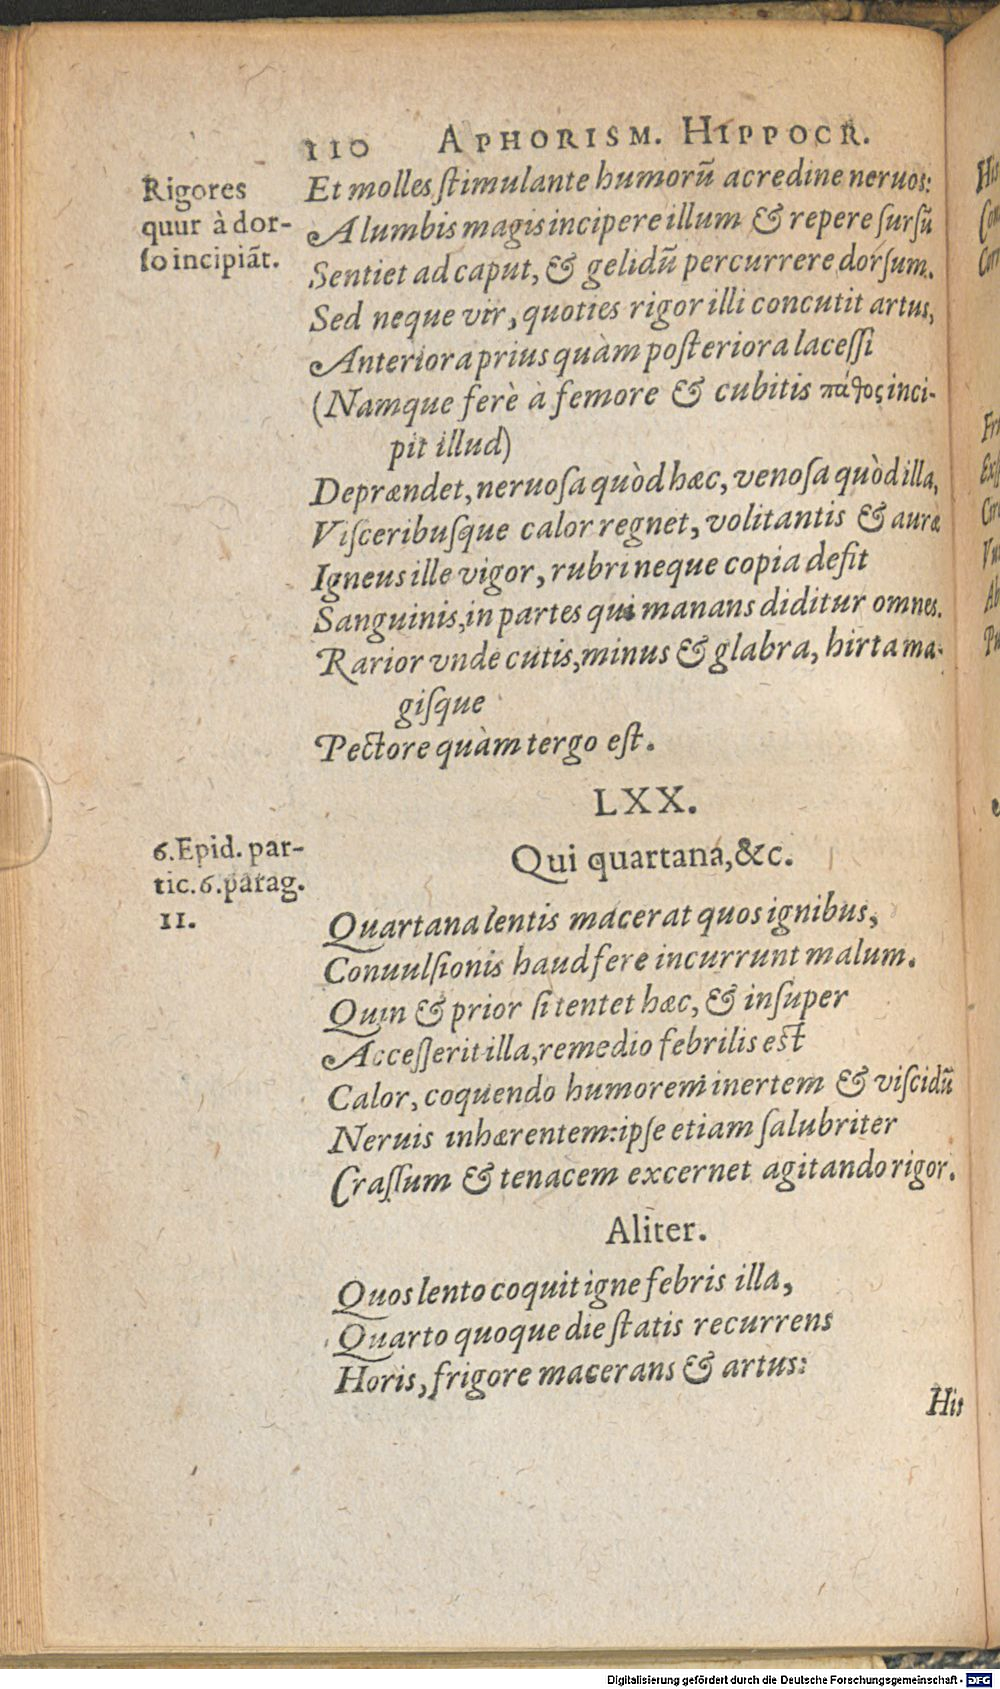 110 APHORISM. HIPPOCR.
Rigores
quur à dor-
so incipiãt.
Et molles ſtimulante humorũ acredine neruos:
A lumbis magis incipere illum & repere ſurſũ
Sentiet ad caput, & gelidũ percurrere dorſum.
Sed neque vir, quoties rigor illi concutit artus,
Anteriora prius quàm poſteriora laceſſi
(Namque ferè à femore & cubitis πάθος inci-
pit illud)
Deprændet, neruoſa quòd hæc, venoſa quòd illa,
Viſceribuſque calor regnet, volitantis & auræ
Igneus ille vigor, rubri neque copia deſit
Sanguinis, in partes qui manans diditur omnes.
Rarior vnde cutis, minus & glabra, hirta ma-
giſque
Pectore quàm tergo eſt.
LXX.
6. Epid. par-
tic. 6. parag.
11.
Qui quartana, &c.
Quartana lentis macerat quos ignibus,
Conuulſionis haud fere incurrunt malum.
Quin & prior ſi tentet hæc, & inſuper
Acceſſerit illa, remedio febrilis est
Calor, coquendo humorem inertem & viſcidũ
Neruis inhærentem: ipſe etiam ſalubriter
Craſſum & tenacem excernet agitando rigor.
Aliter.
Quos lento coquit igne febris illa,
Quarto quoque die ſtatis recurrens
Horis, frigore macerans & artus:
His
His
Con
Corr
Fri
Exſ
Circ
Vn
Ab
Pu
Digitalisierung gefördert durch die Deutsche Forschungsgemeinschaft - DFG